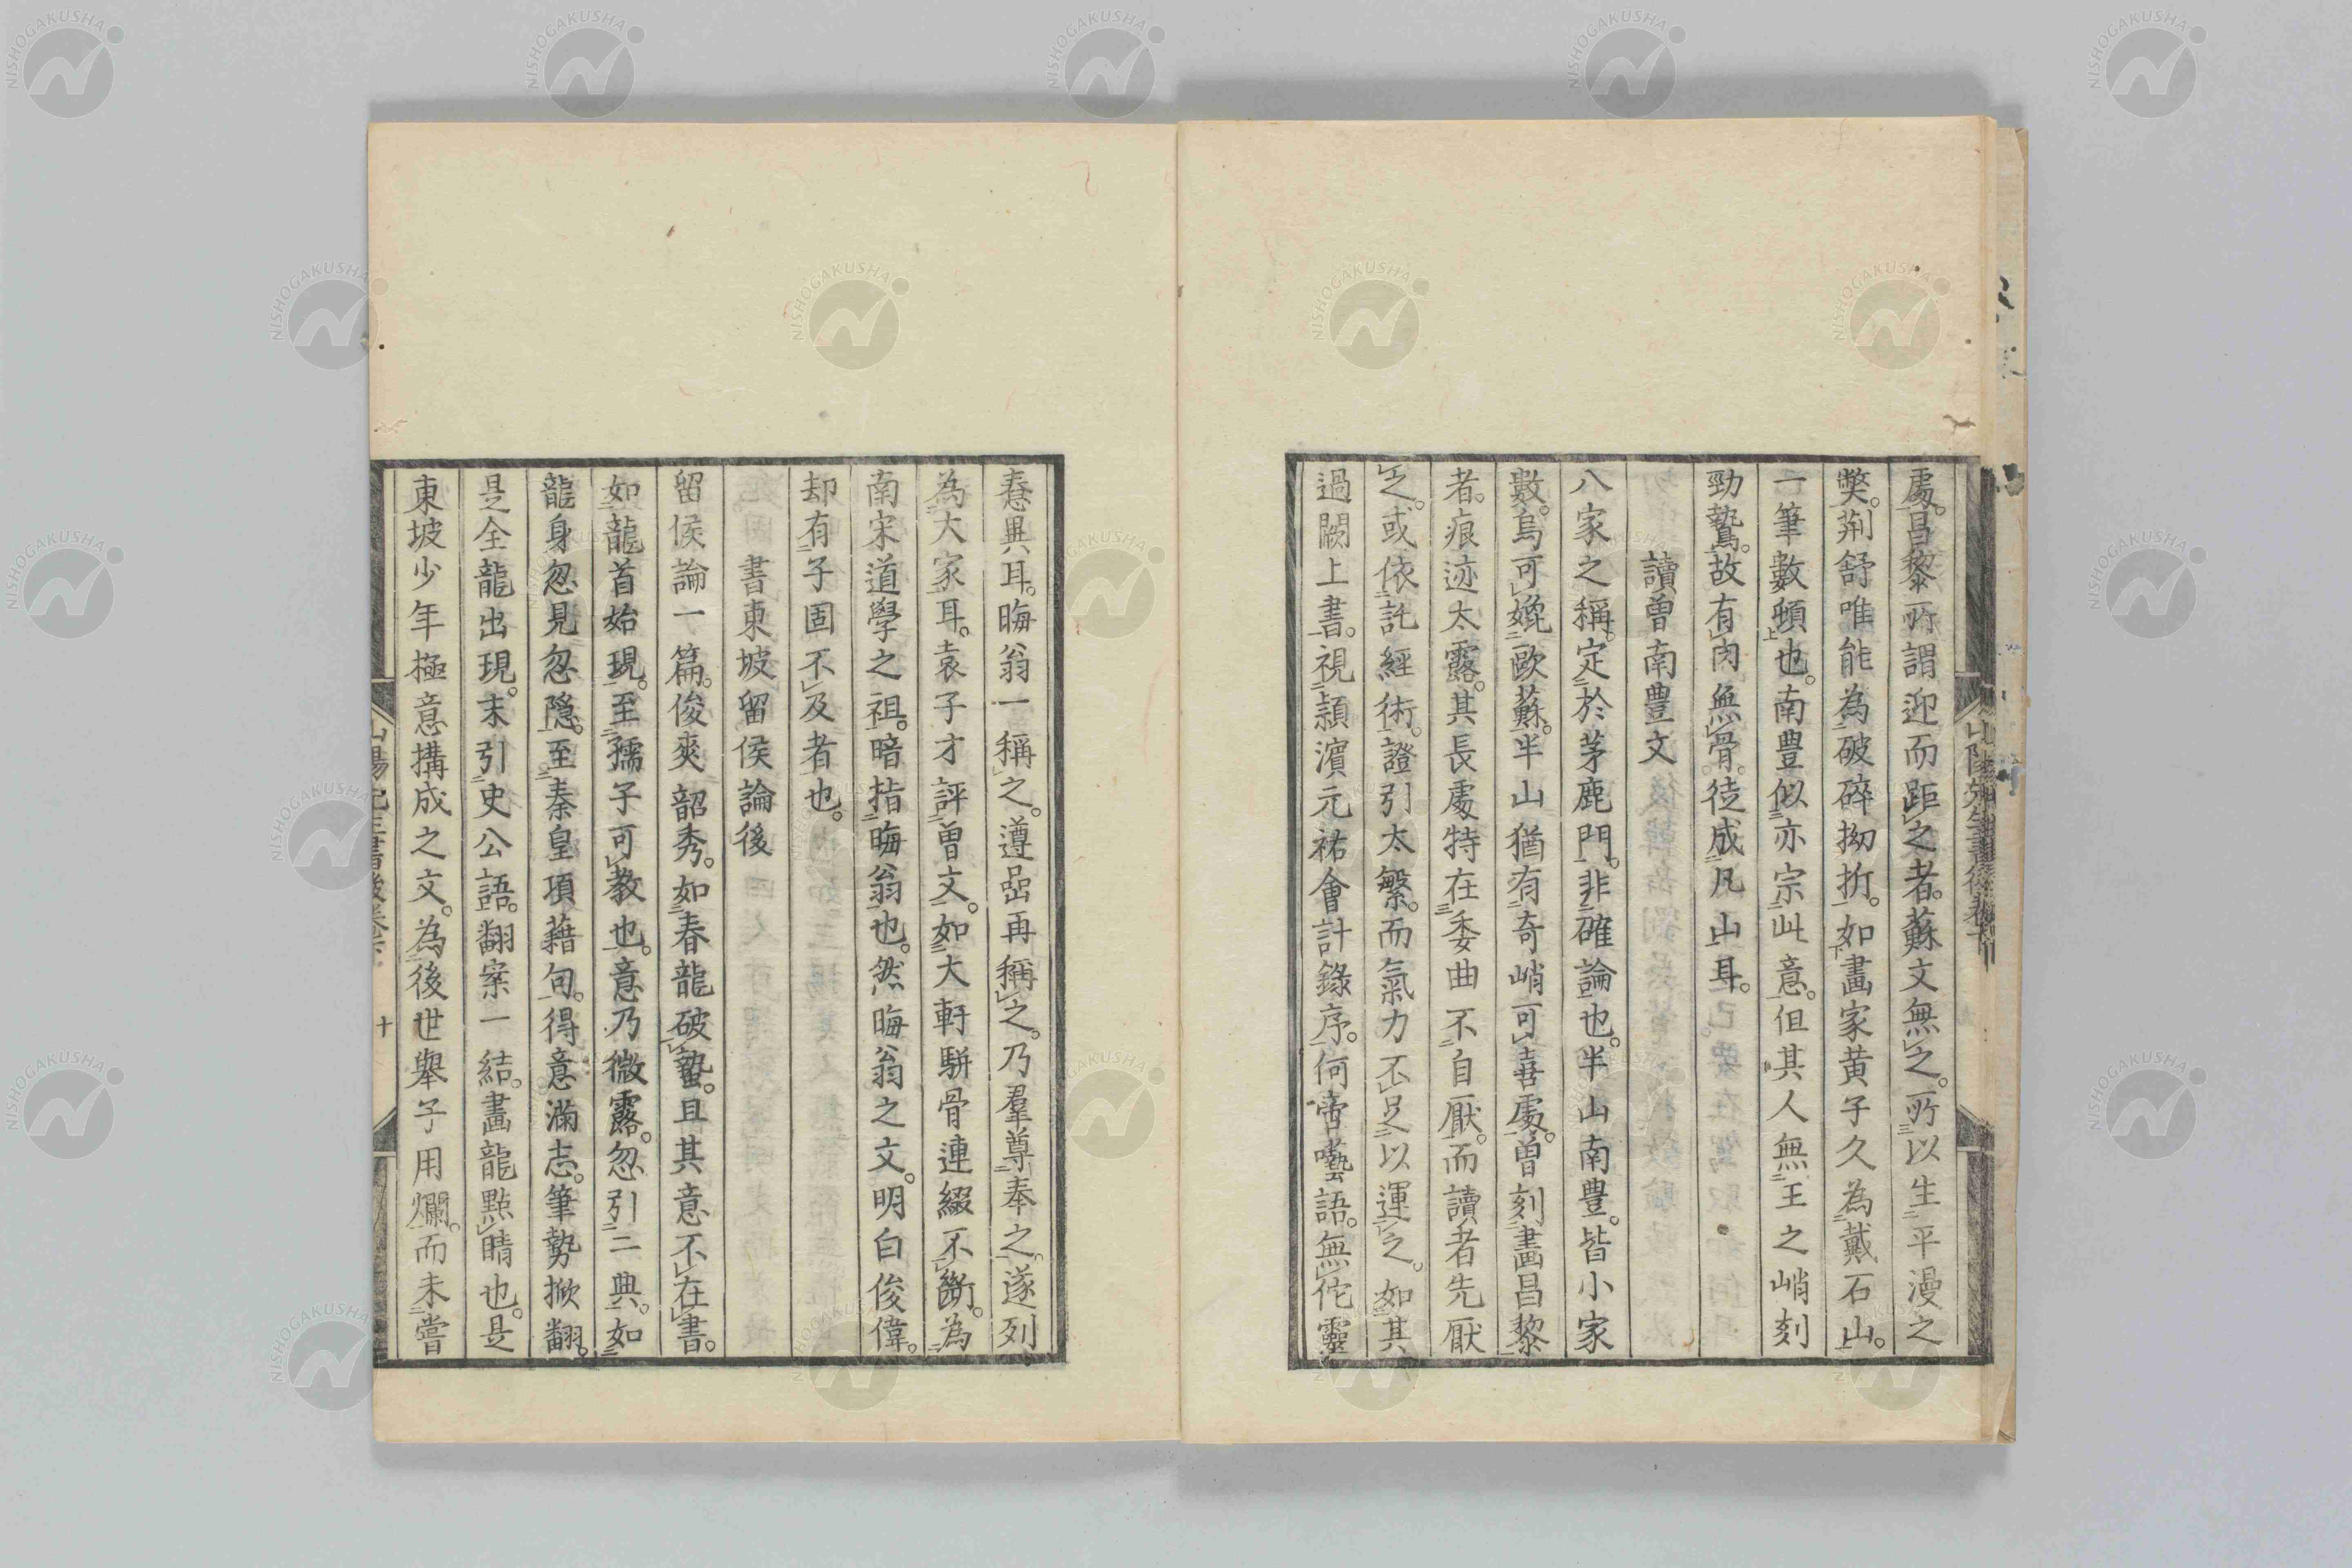 處。昌黎所謂迎而距之者。蘇文無之。所以生平漫之
獘。荊舒唯能為破碎拗折。如畫家黃子久為戴石山。
一筆數頓也。南豊似亦宗此意。但其人無王之峭刻
勁鷙。故有肉無骨。徒成凡山耳。
讀曾南豊文
八家之稱。定於茅鹿門。非確論也。半山南豊。皆小家
數。烏可媲歐蘇。半山猶有奇峭可喜處。曾刻畫昌黎
者。痕迹太露。其長處特在委曲不自厭。而讀者先厭
之。或依託經術。證引太繁。而氣力不足以運之。如其
過闕上書。視潁濱元祐會計錄序。何啻囈語。無佗靈
惷異耳。晦翁一稱之。遵嵒再稱之。乃羣尊奉之。遂列
為大家耳。袁子才評曾文。如大軒駢骨連綴不斷。為
南宋道學之祖。暗指晦翁也。然晦翁之文。明白俊偉。
却有子固不及者也。
書東坡留侯論後
留侯論一篇。俊爽韶秀。如春龍破蟄。且其意不在書。
如龍首始現。至孺子可教也。意乃微露。忽引二典。如
龍身忽見忽隱。至秦皇項藉句。得意滿志。筆勢掀翻。
是全龍出現。末引史公語。翻案一結。畫龍點睛也。是
東坡少年極意搆成之文。為後世舉子用爛。而未嘗
十